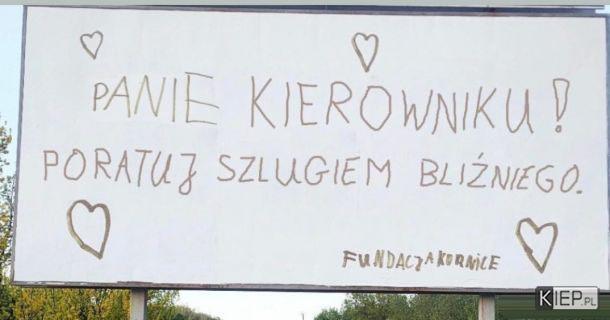 PANIE KIEROWNIKU!
PORATUJ SZLUGIEM BLIŹNIEGO.
FUNDACJA KORNICE
KIEP.PL